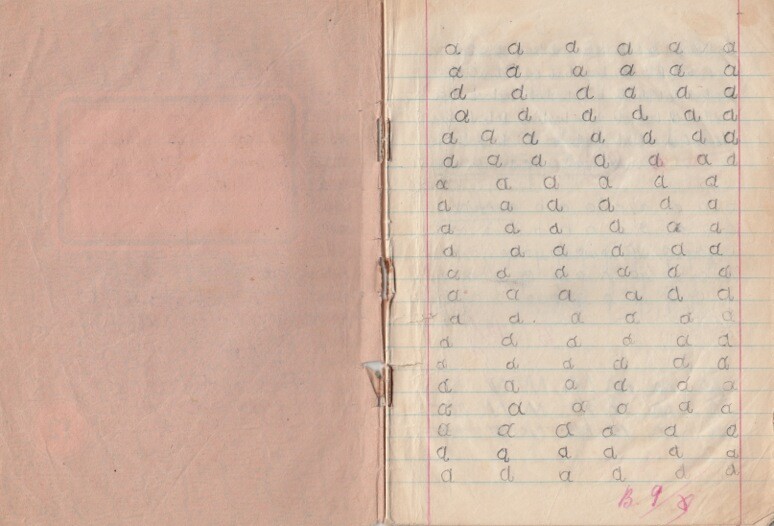 a a a a a a
a a a a a a
a a a a a a
a a a a a a
a a a a a a a
a a a a a a a
a a a a a a
a a a a a a
a a a a a a
a a a a a a
a a a a a a
a a a a a a
a a a a a a
a a a a a a
a a a a a a
a a a a a a
a a a a a a
a a a a a a
a a a a a a
a a a a a a
B. 9